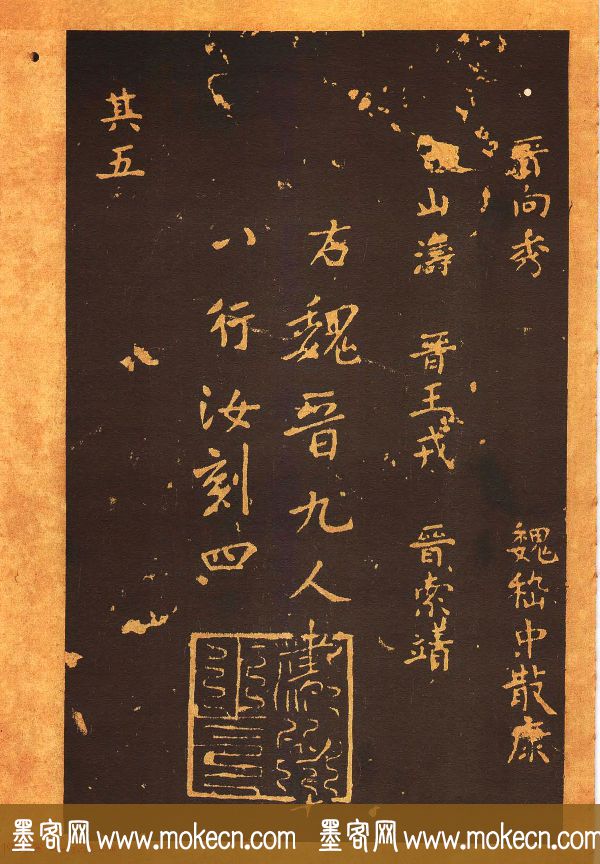 晉向秀 魏嵇中散康
山濤 晉王戎 晉索靖
右魏晉九人書
八行汝刻四
其五
墨客网 www.mokecn.com 墨客网 www.mokecn.com